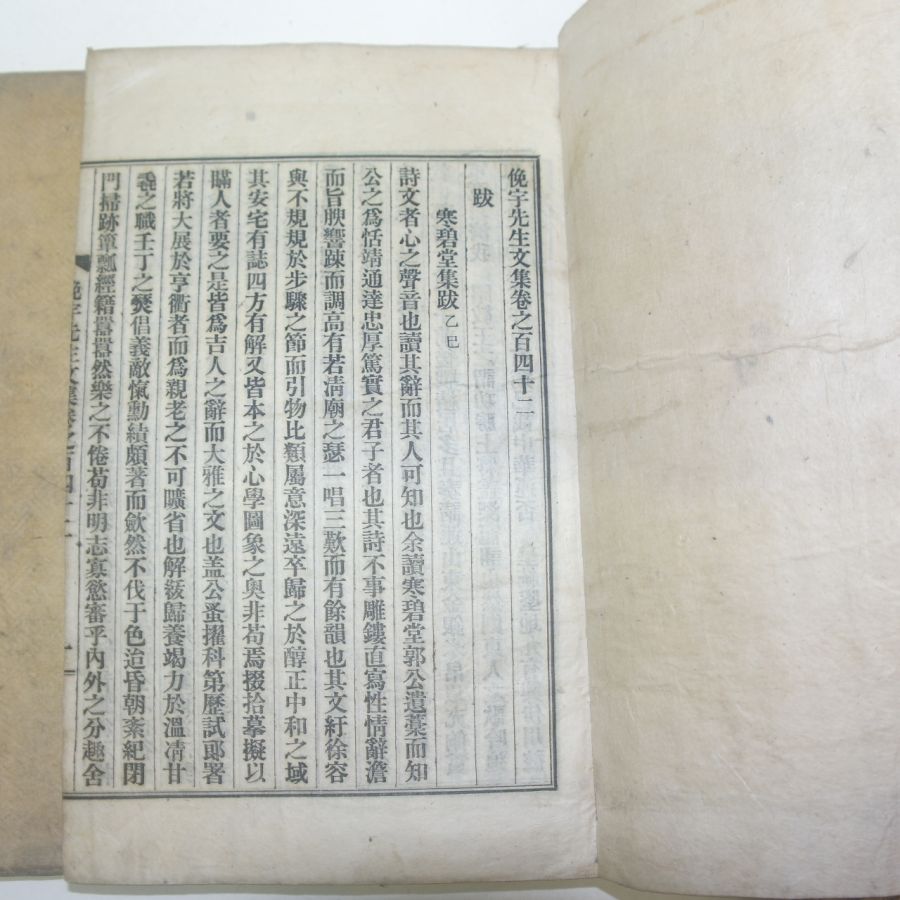 俛宇先生文集卷之百四十二
跋
寒碧堂集跋 乙巳
詩文者心之聲音也讀其辭而其人可知也余讀寒碧堂郭公遺藁而知
公之爲恬靖通達忠厚篤實之君子者也其詩不事雕鏤直寫性情辭澹
而旨腴響踈而調高有若淸廟之瑟一唱三歎而有餘韻也其文紆徐容
與不規規於步驟之節而引物比類屬意深遠卒歸之於醇正中和之域
其安宅有誌四方有解又皆本之於心學圖象之奧非苟焉掇拾摹擬以
瞞人者要之是皆爲吉人之辭而大雅之文也盖公蚤擢科第歷試郞署
若將大展於亨衢者而爲親老之不可曠省也解紱歸養竭力於溫凊甘
毳之職壬丁之燹倡義敵愾勳績頗著而歛然不伐于色洎昏朝紊紀閉
門掃跡簞瓢經籍囂囂然樂之不倦苟非明志寡慾審乎內外之分趣舍
俛宇先生文集卷之百四十二